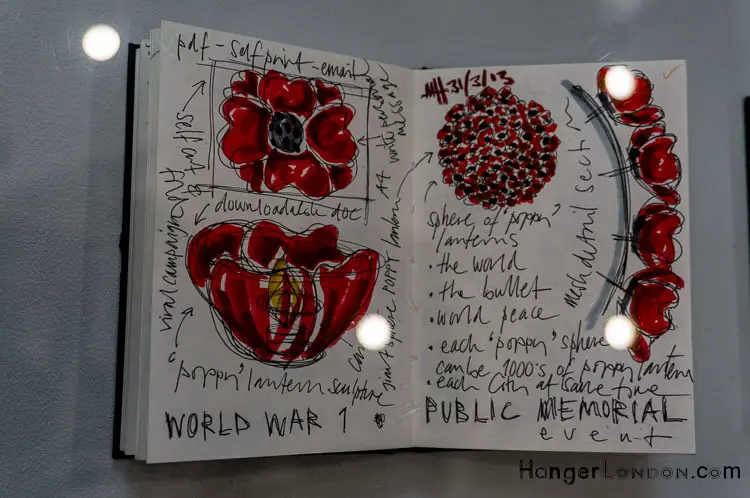 pdf - self print - email
A4 write personal message
downloadable doc
viral campaign
'poppy' lantern sculpture
WORLD WAR 1
31/3/13
sphere of 'poppy'
lanterns
• the world
• the bullet
• world peace
• each 'poppy' sphere
can be 1000's of poppy lantern
• each city at same time
mesh detail section
PUBLIC MEMORIAL
event
HangerLondon.com